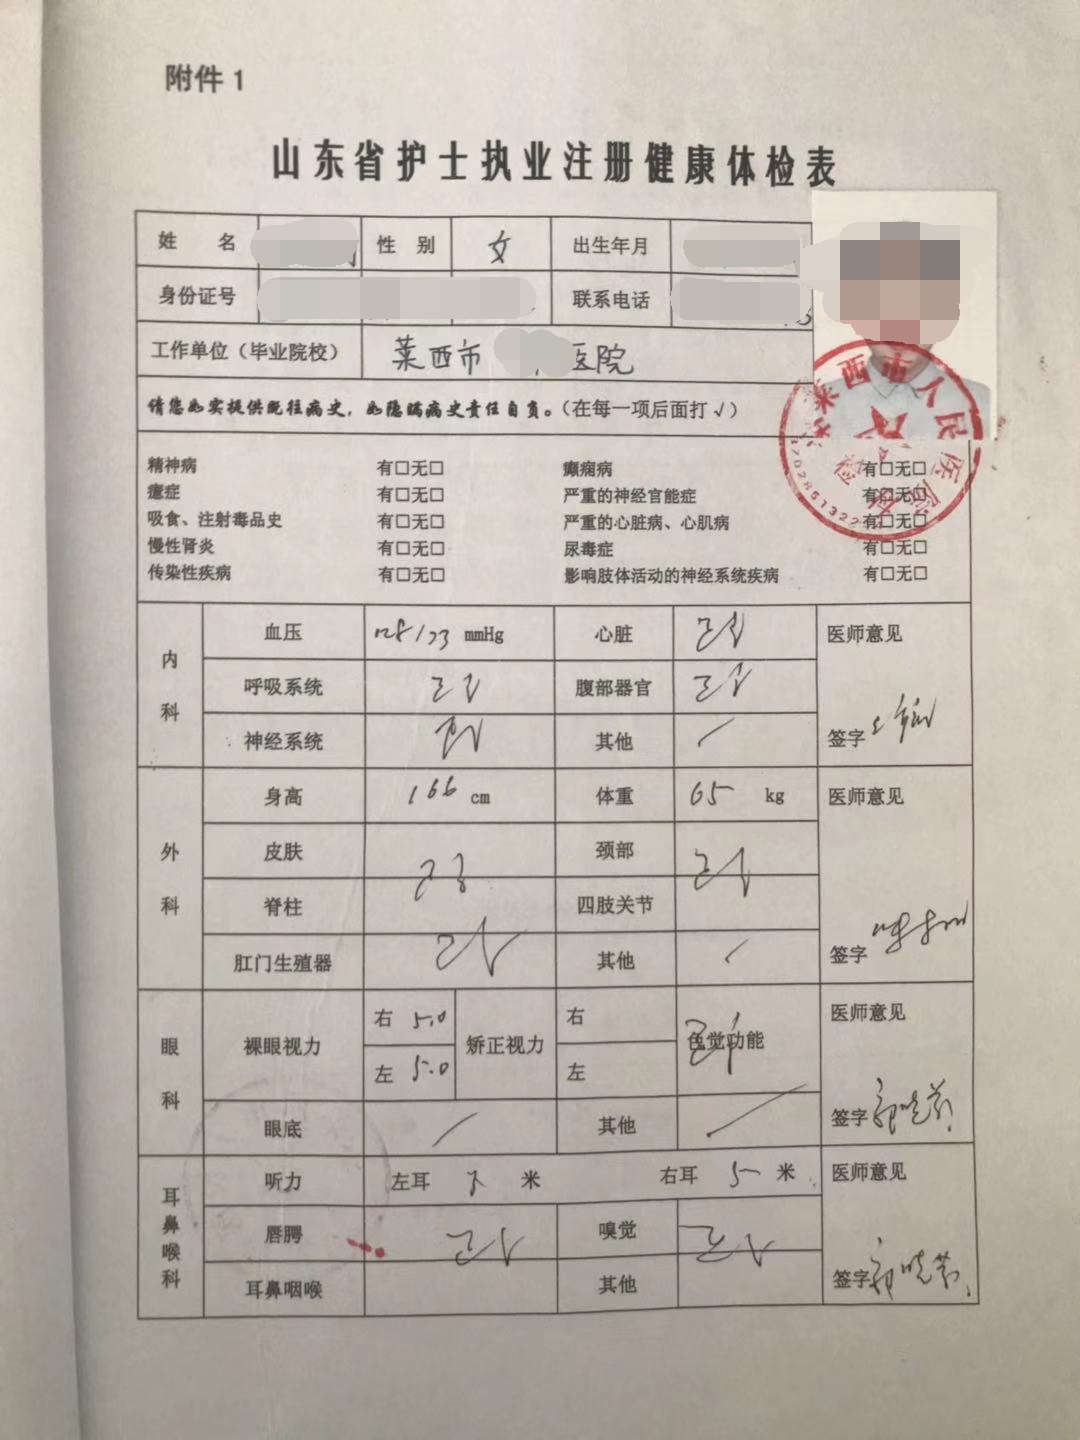 附件 1
山东省护士执业注册健康体检表
姓 名 性 别 女 出生年月
身份证号 联系电话
工作单位（毕业院校） 莱西市 医院
请您如实提供既往病史，如隐瞒病史责任自负。（在每一项后面打√）
精神病 有□无□ 癫痫病 有□无□
癔症 有□无□ 严重的神经官能症 有□无□
吸食、注射毒品史 有□无□ 严重的心脏病、心肌病 有□无□
慢性肾炎 有□无□ 尿毒症 有□无□
传染性疾病 有□无□ 影响肢体活动的神经系统疾病 有□无□
莱西市人民医院
内科
血压 128/73 mmHg 心脏 正常 医师意见
呼吸系统 正常 腹部器官 正常
神经系统 正常 其他 / 签字
外科
身高 166 cm 体重 65 kg 医师意见
皮肤 颈部
正常 正常
脊柱 四肢关节
肛门生殖器 正常 其他 / 签字
眼科
裸眼视力 右 5.0 矫正视力 右 色觉功能 正常 医师意见
左 5.0 左
眼底 / 其他 / 签字
耳鼻喉科
听力 左耳 5 米 右耳 5 米 医师意见
唇腭 正常 嗅觉 正常
耳鼻咽喉 其他 签字